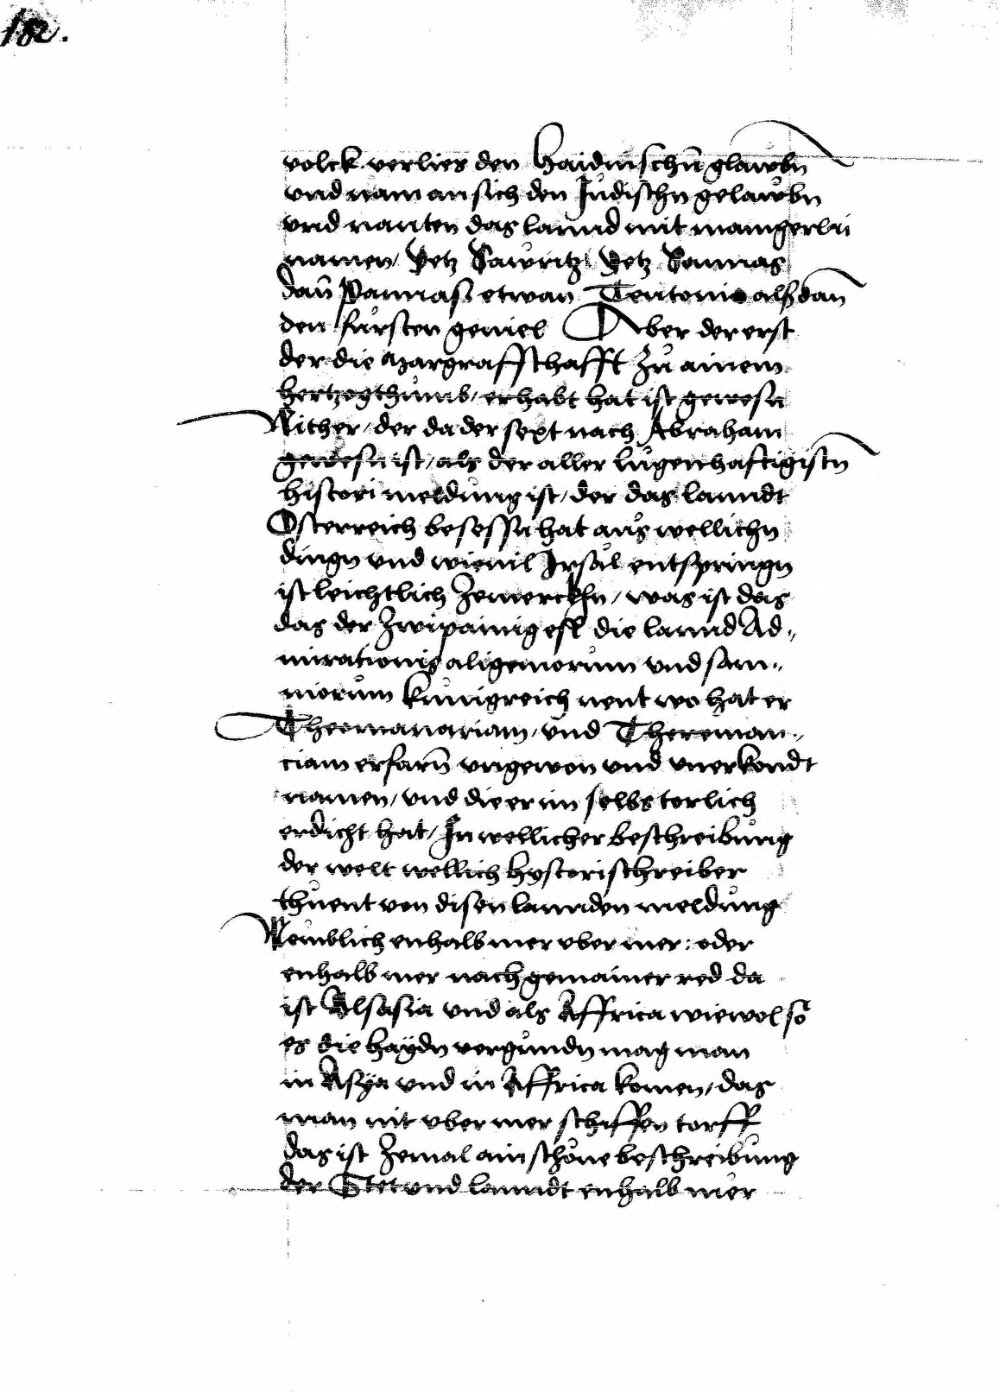 182.
volck verlies den Haidnischn glawbn
vnd nam an sich den Judischn gelawbn
vnd nanten das lannd mit manigerlai
namen / Yetz Sawritz Yetz Sannas
dan Pannas etwan Tentonio alsdan
den fürsten geniel Aber der erst
der die Margraffschafft zu ainem
hertzogthumb / erhabt hat ist gewesn
Rither / der da der sext nach Abraham
gewesn ist / als der aller lugenhaftigistn
histori meldung ist / der das lanndt
Osterreich besessn hat aus wellichn
dingn vnd wieuil Irsal entspringn
ist leichtlich zemerckhn / was ist das
das der zwipainig esl die lannd Ad„
mirationis aligemorum vnd sam„
morum kunigreich nent wo hat er
Theomanariam / vnd Thereman„
ciam erfarn vngewon vnd vnerkondt
namen / vnd die er im selbs torlich
erdicht hat / In wellicher beschreibung
der welt wellich hystorischreiber
thuent von disen lannden meldung
Nemblich enhalb mer vber mer : oder
enhalb mer nach gemainer red da
ist Alsasia vnd als Affrica wiewol so
es die haydn vergundn mag man
in Asya vnd in Affrica komen / das
man nit vber mer schiffen torff
das ist zemal ain schone beschreibung
der Stet vnd lanndt enhalb mer